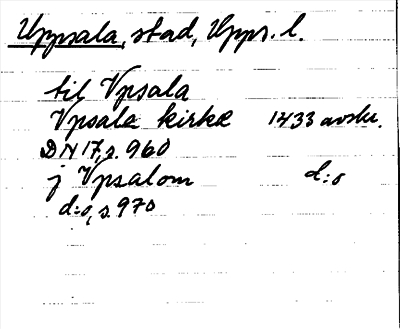 Uppsala, stad, Upps. l.
til Vpsala
Vpsala kirkæ 1433 avskr.
DN 17, s. 960
j Vpsalom d:o
d:o, s. 970